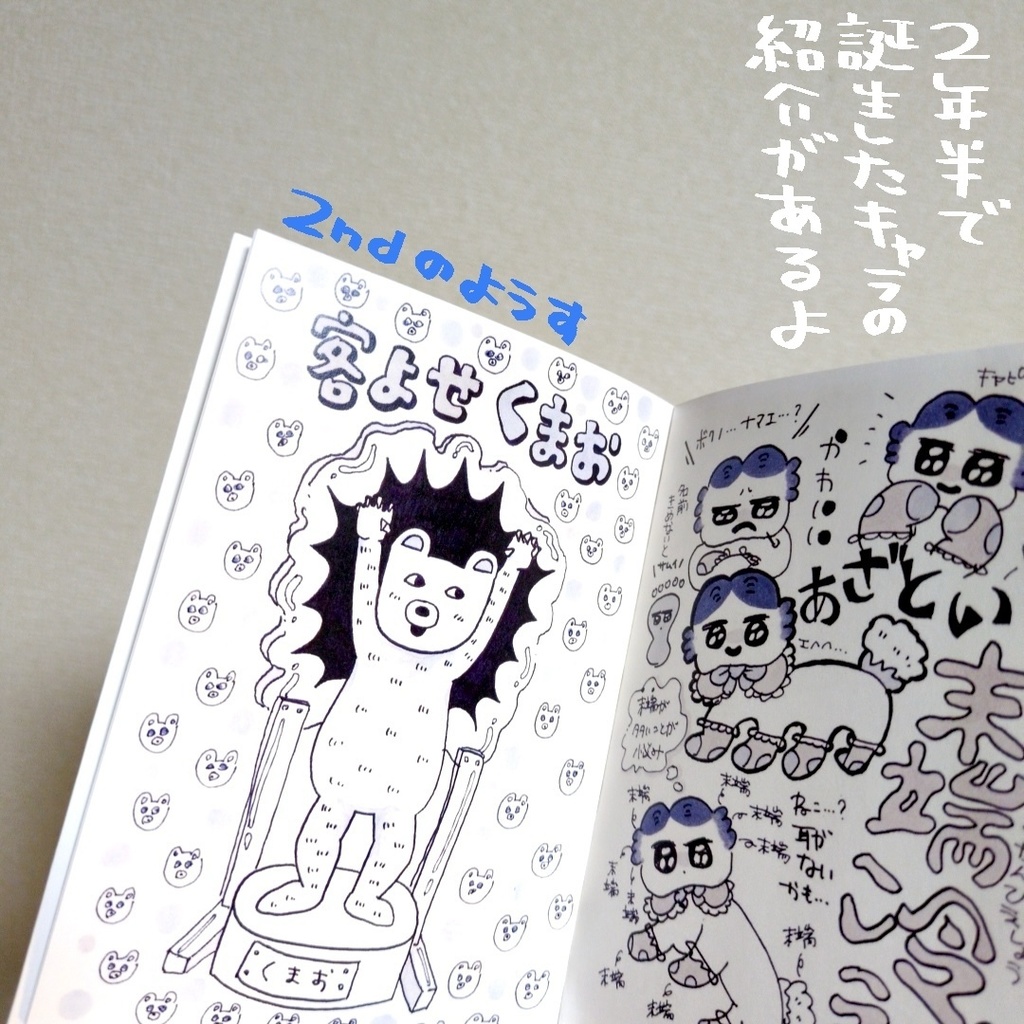 2年半で
誕生したキャラの
紹介があるよ
2ndのようす
客よせくまお
くまお
ボクノ…ナマエ…?
名前
きめないと
サムイ
かわい
あざとい
エヘヘ…
末端が
多いことが
悩み
末端
末端
末端
末端
末端
末端
末端
末端
末端
ねこ…?
耳が
ない
かも…
末端冷